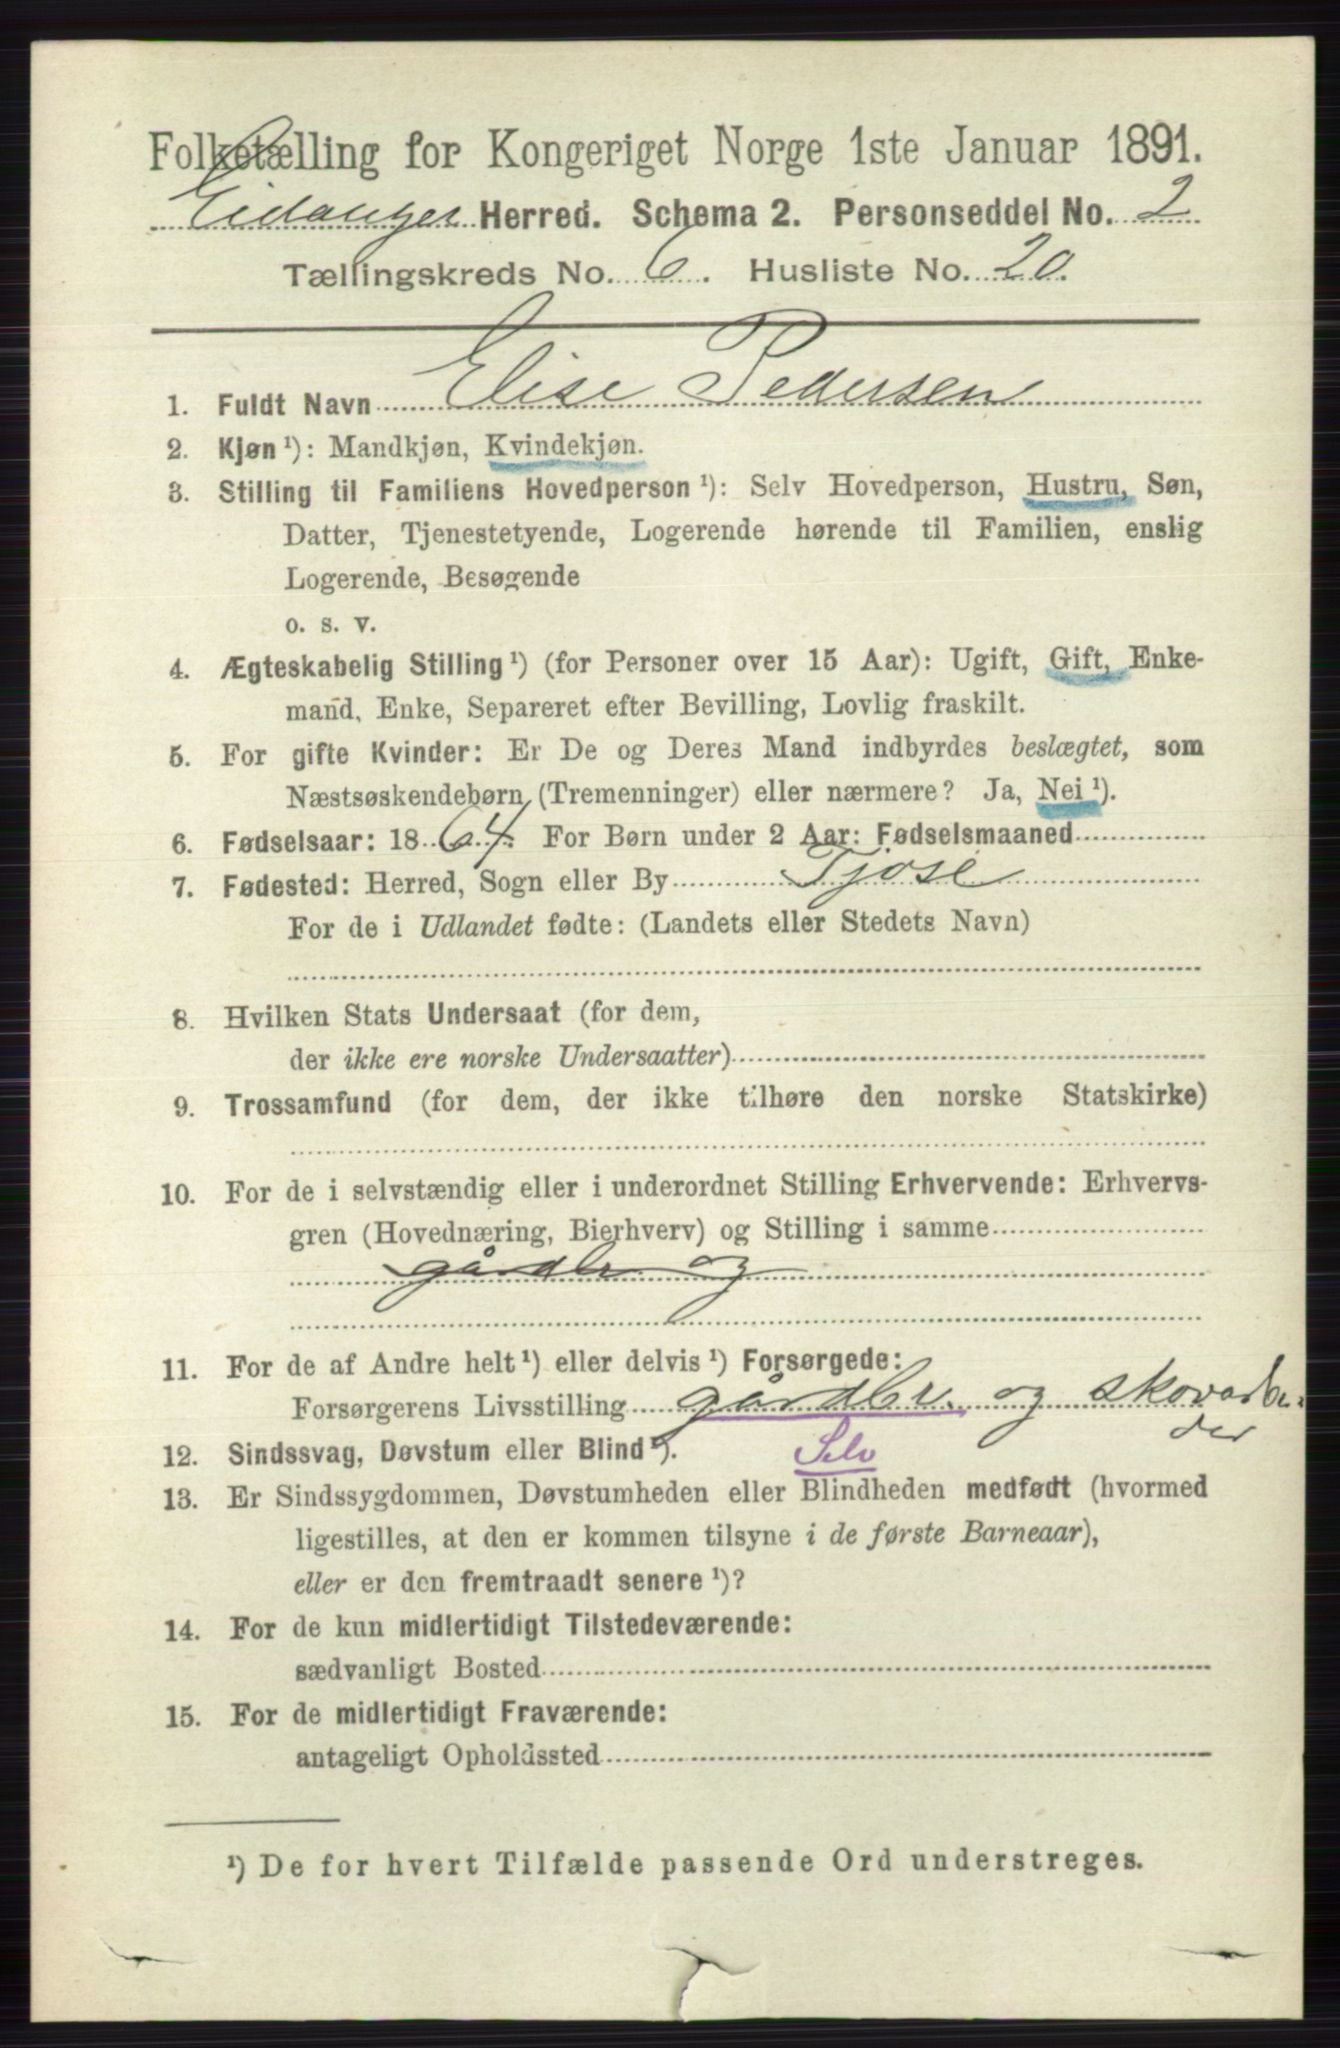 Folketælling for Kongeriget Norge 1ste Januar 1891.
Eidanger Herred. Schema 2. Personseddel No. 2
Tællingskreds No. 6. Husliste No. 20.
1. Fuldt Navn Elise Pedersen
2. Kjøn ¹): Mandkjøn, Kvindekjøn.
3. Stilling til Familiens Hovedperson ¹): Selv Hovedperson, Hustru, Søn,
Datter, Tjenestetyende, Logerende hørende til Familien, enslig
Logerende, Besøgende
o. s. v.
4. Ægteskabelig Stilling ¹) (for Personer over 15 Aar): Ugift, Gift, Enke-
mand, Enke, Separeret efter Bevilling, Lovlig fraskilt.
5. For gifte Kvinder: Er De og Deres Mand indbyrdes beslægtet, som
Næstsøskendebørn (Tremenninger) eller nærmere? Ja, Nei ¹).
6. Fødselsaar: 1864. For Børn under 2 Aar: Fødselsmaaned
7. Fødested: Herred, Sogn eller By Tjose
For de i Udlandet fødte: (Landets eller Stedets Navn)
8. Hvilken Stats Undersaat (for dem,
der ikke ere norske Undersaatter)
9. Trossamfund (for dem, der ikke tilhøre den norske Statskirke)
10. For de i selvstændig eller i underordnet Stilling Erhvervende: Erhvervs-
gren (Hovednæring, Bierhverv) og Stilling i samme
gårdbr og
11. For de af Andre helt ¹) eller delvis ¹) Forsørgede:
Forsørgerens Livsstilling gårdbr. og skovarbei
der
12. Sindssvag, Døvstum eller Blind ¹). Selv
13. Er Sindssygdommen, Døvstumheden eller Blindheden medfødt (hvormed
ligestilles, at den er kommen tilsyne i de første Barneaar),
eller er den fremtraadt senere ¹)?
14. For de kun midlertidigt Tilstedeværende:
sædvanligt Bosted
15. For de midlertidigt Fraværende:
antageligt Opholdssted
¹) De for hvert Tilfælde passende Ord understreges.